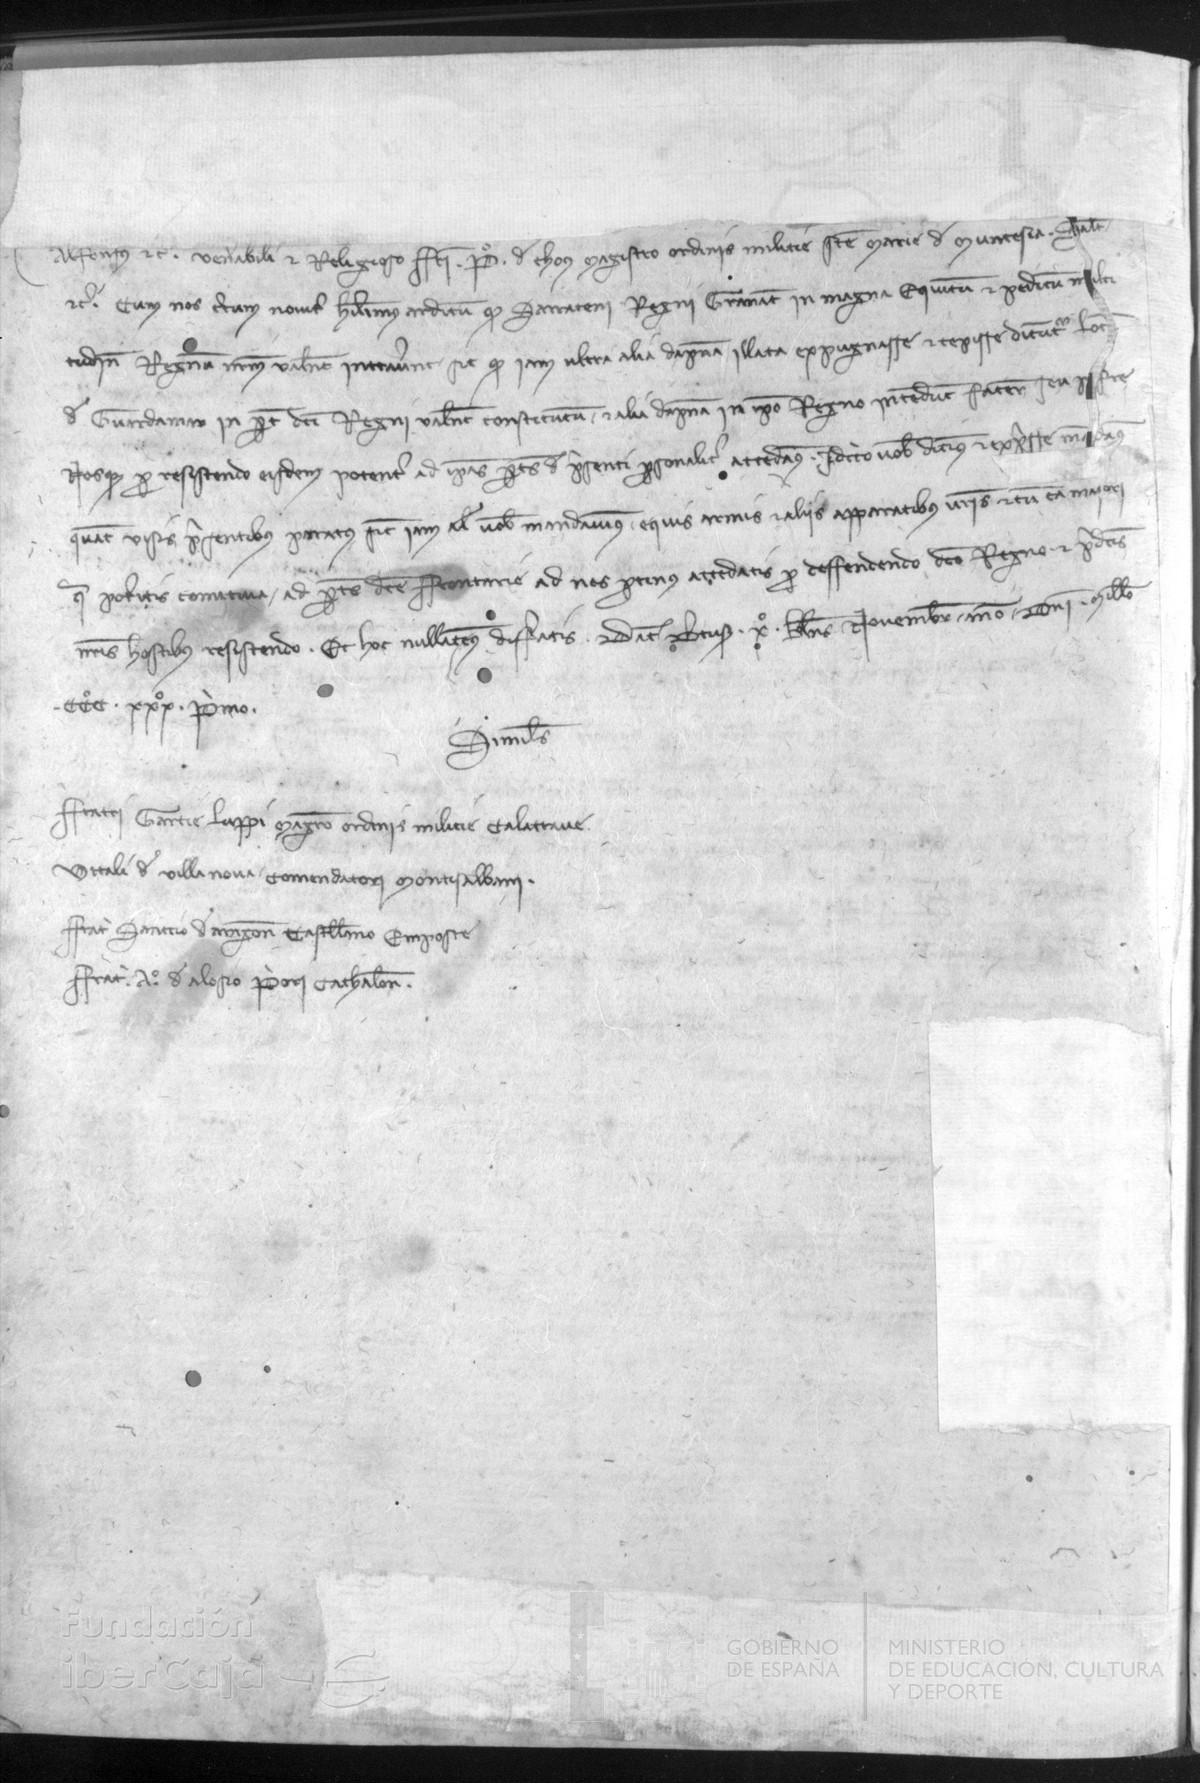 Alfonsus etc. venerabili et Religioso ffri. P̊. de thous magistro ordinis milicie sce Marie de Muntesia. Salt
etc. Cum nos certum noviter habuerimus arditum quod Sarraceni Regni Granate in magna Equitum et peditum multi
tudine Regnum nrm valene intraverunt sic quod iam ultra alia dapna illata expugnasse et cepisse dicuntur locum
de Guardamar in parte dci Regni valene constitutum, et alia dapna in ipso Regno intendunt facere seu inferre
Nosque pro resistendo eisdem potenter ad ipas partes de presenti personaliter accedamus. Idcirco vob dicimus et expresse mandamus
quatenus visis presentibus paratus sic iam alias vob mandavimus, equis armis et aliis apparatibus vris et cum ea maiori
qua poteritis comitiva, ad partes dce ffrontarie ad nos protinus accedatis pro deffendendo dco Regno et predictis
nris hostibus resistendo. Et hoc nullatenus differatis. Dat Dertuse. x̊. klns Novembr. anno. Dni. Millo
CCC. xxx. Primo.
Similes
ffratri Garcie luppi magro ordinis milicie Calatrave.
Vitali de villanova, Comendatori Montisalbani.
ffratri Sancio d aragon Castellano Emposte
ffratri. Å. de alosio Priori Cathalon.
Fundación
iberCaja
GOBIERNO
DE ESPAÑA
MINISTERIO
DE EDUCACIÓN, CULTURA
Y DEPORTE